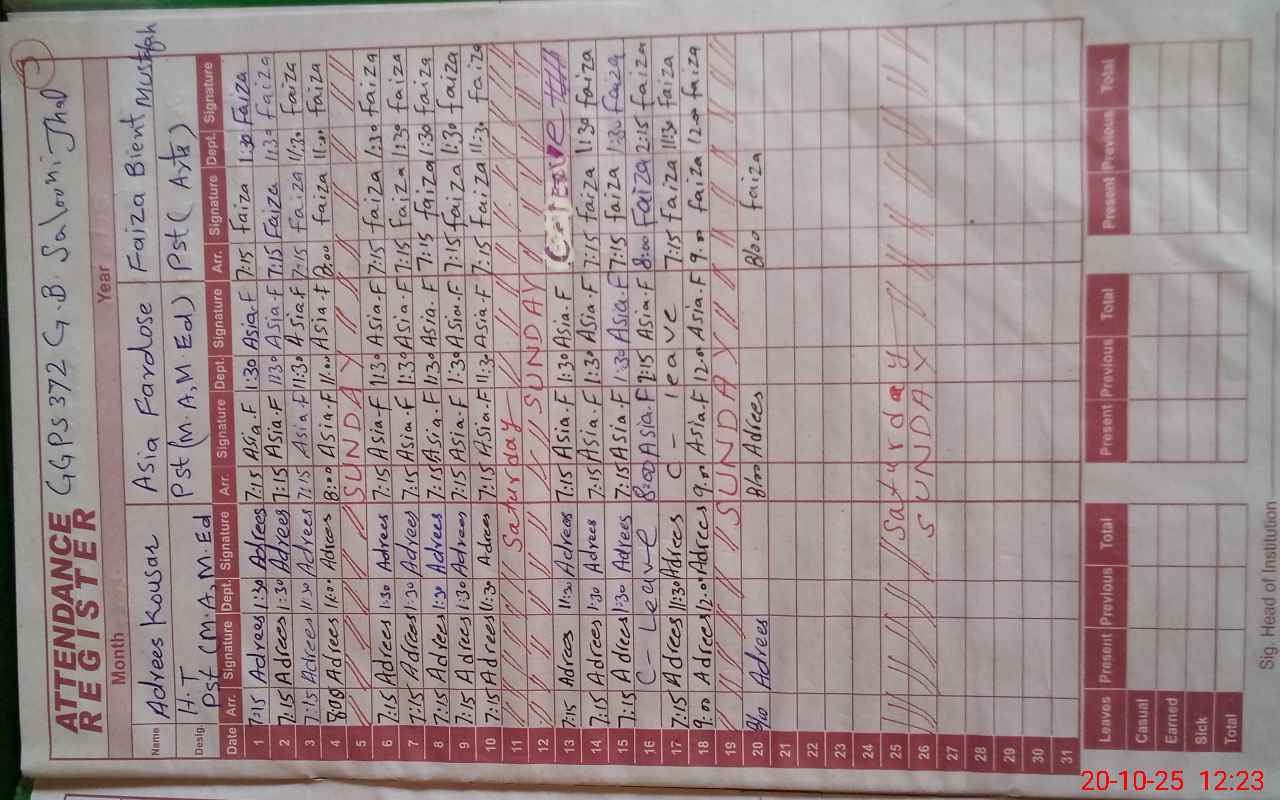 ATTENDANCE REGISTER GGPS 372 G.B Salooni Jhal
Month Year
Name Adrees Kousar Asia Fardose Faiza Bient Mustfah
Desig. H.T Pst (M.A, M.Ed) Pst (Arts)
Pst (M.A, M.Ed
Date Arr. Signature Dept. Signature Arr. Signature Dept. Signature Arr. Signature Dept. Signature
1 7:15 Adrees 1:30 Adrees 7:15 Asia.F 1:30 Asia.F 7:15 faiza 1:30 Faiza
2 7:15 Adrees 1:30 Adrees 7:15 Asia.F 1:30 Asia.F 7:15 Faiza 11:30 Faiza
3 7:15 Adrees 11:30 Adrees 7:15 Asia.F 11:30 Asia.F 7:15 Faiza 11:30 Faiza
4 8:00 Adrees 11:00 Adrees 8:00 Asia.F 11:00 Asia.F 8:00 faiza 11:30 faiza
5 SUNDAY
6 7:15 Adrees 1:30 Adrees 7:15 Asia.F 1:30 Asia.F 7:15 faiza 1:30 faiza
7 7:15 Adrees 1:30 Adrees 7:15 Asia.F 1:30 Asia.F 7:15 faiza 1:30 faiza
8 7:15 Adrees 1:30 Adrees 7:15 Asia.F 11:30 Asia.F 7:15 faiza 1:30 faiza
9 7:15 Adrees 1:30 Adrees 7:15 Asia.F 1:30 Asia.F 7:15 faiza 1:30 faiza
10 7:15 Adrees 11:30 Adrees 7:15 Asia.F 11:30 Asia.F 7:15 faiza 11:30 faiza
11 Saturday
12 SUNDAY
13 7:15 Adrees 11:30 Adrees 7:15 Asia.F 1:30 Asia.F leave
14 7:15 Adrees 1:30 Adrees 7:15 Asia.F 1:30 Asia.F 7:15 faiza 11:30 faiza
15 7:15 Adrees 1:30 Adrees 7:15 Asia.F 1:30 Asia.F 7:15 faiza 1:30 Faiza
16 C- Leave 8:00 Asia.F 2:15 Asia.F 8:00 Faiza 2:15 faiza
17 7:15 Adrees 11:30 Adrees C- leave 7:15 faiza 11:30 faiza
18 9:00 Adrees 12:00 Adrees 9:00 Asia.F 12:00 Asia.F 9:00 faiza 12:00 faiza
19 SUNDAY
20 8/00 Adrees 8/00 Adrees 8/00 faiza
21
22
23
24
25 Saturday
26 SUNDAY
27
28
29
30
31
Leaves Present Previous Total Present Previous Total Present Previous Total
Casual
Earned
Sick
Total
Sig. Head of Institution
20-10-25 12:23